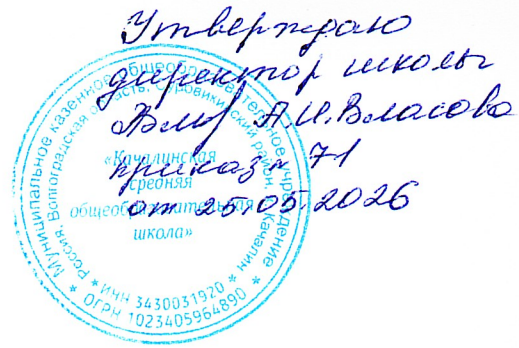 Утверждаю
директор школы
А.И.Власова
приказ № 71
от 25.05.2026
Муниципальное казенное общеобразовательное учреждение
Россия, Волгоградская область, Суровикинский район, х. Качалин
«Качалинская
средняя
общеобразовательная
школа»
* ИНН 3430031920 *
* ОГРН 1023405964890 *